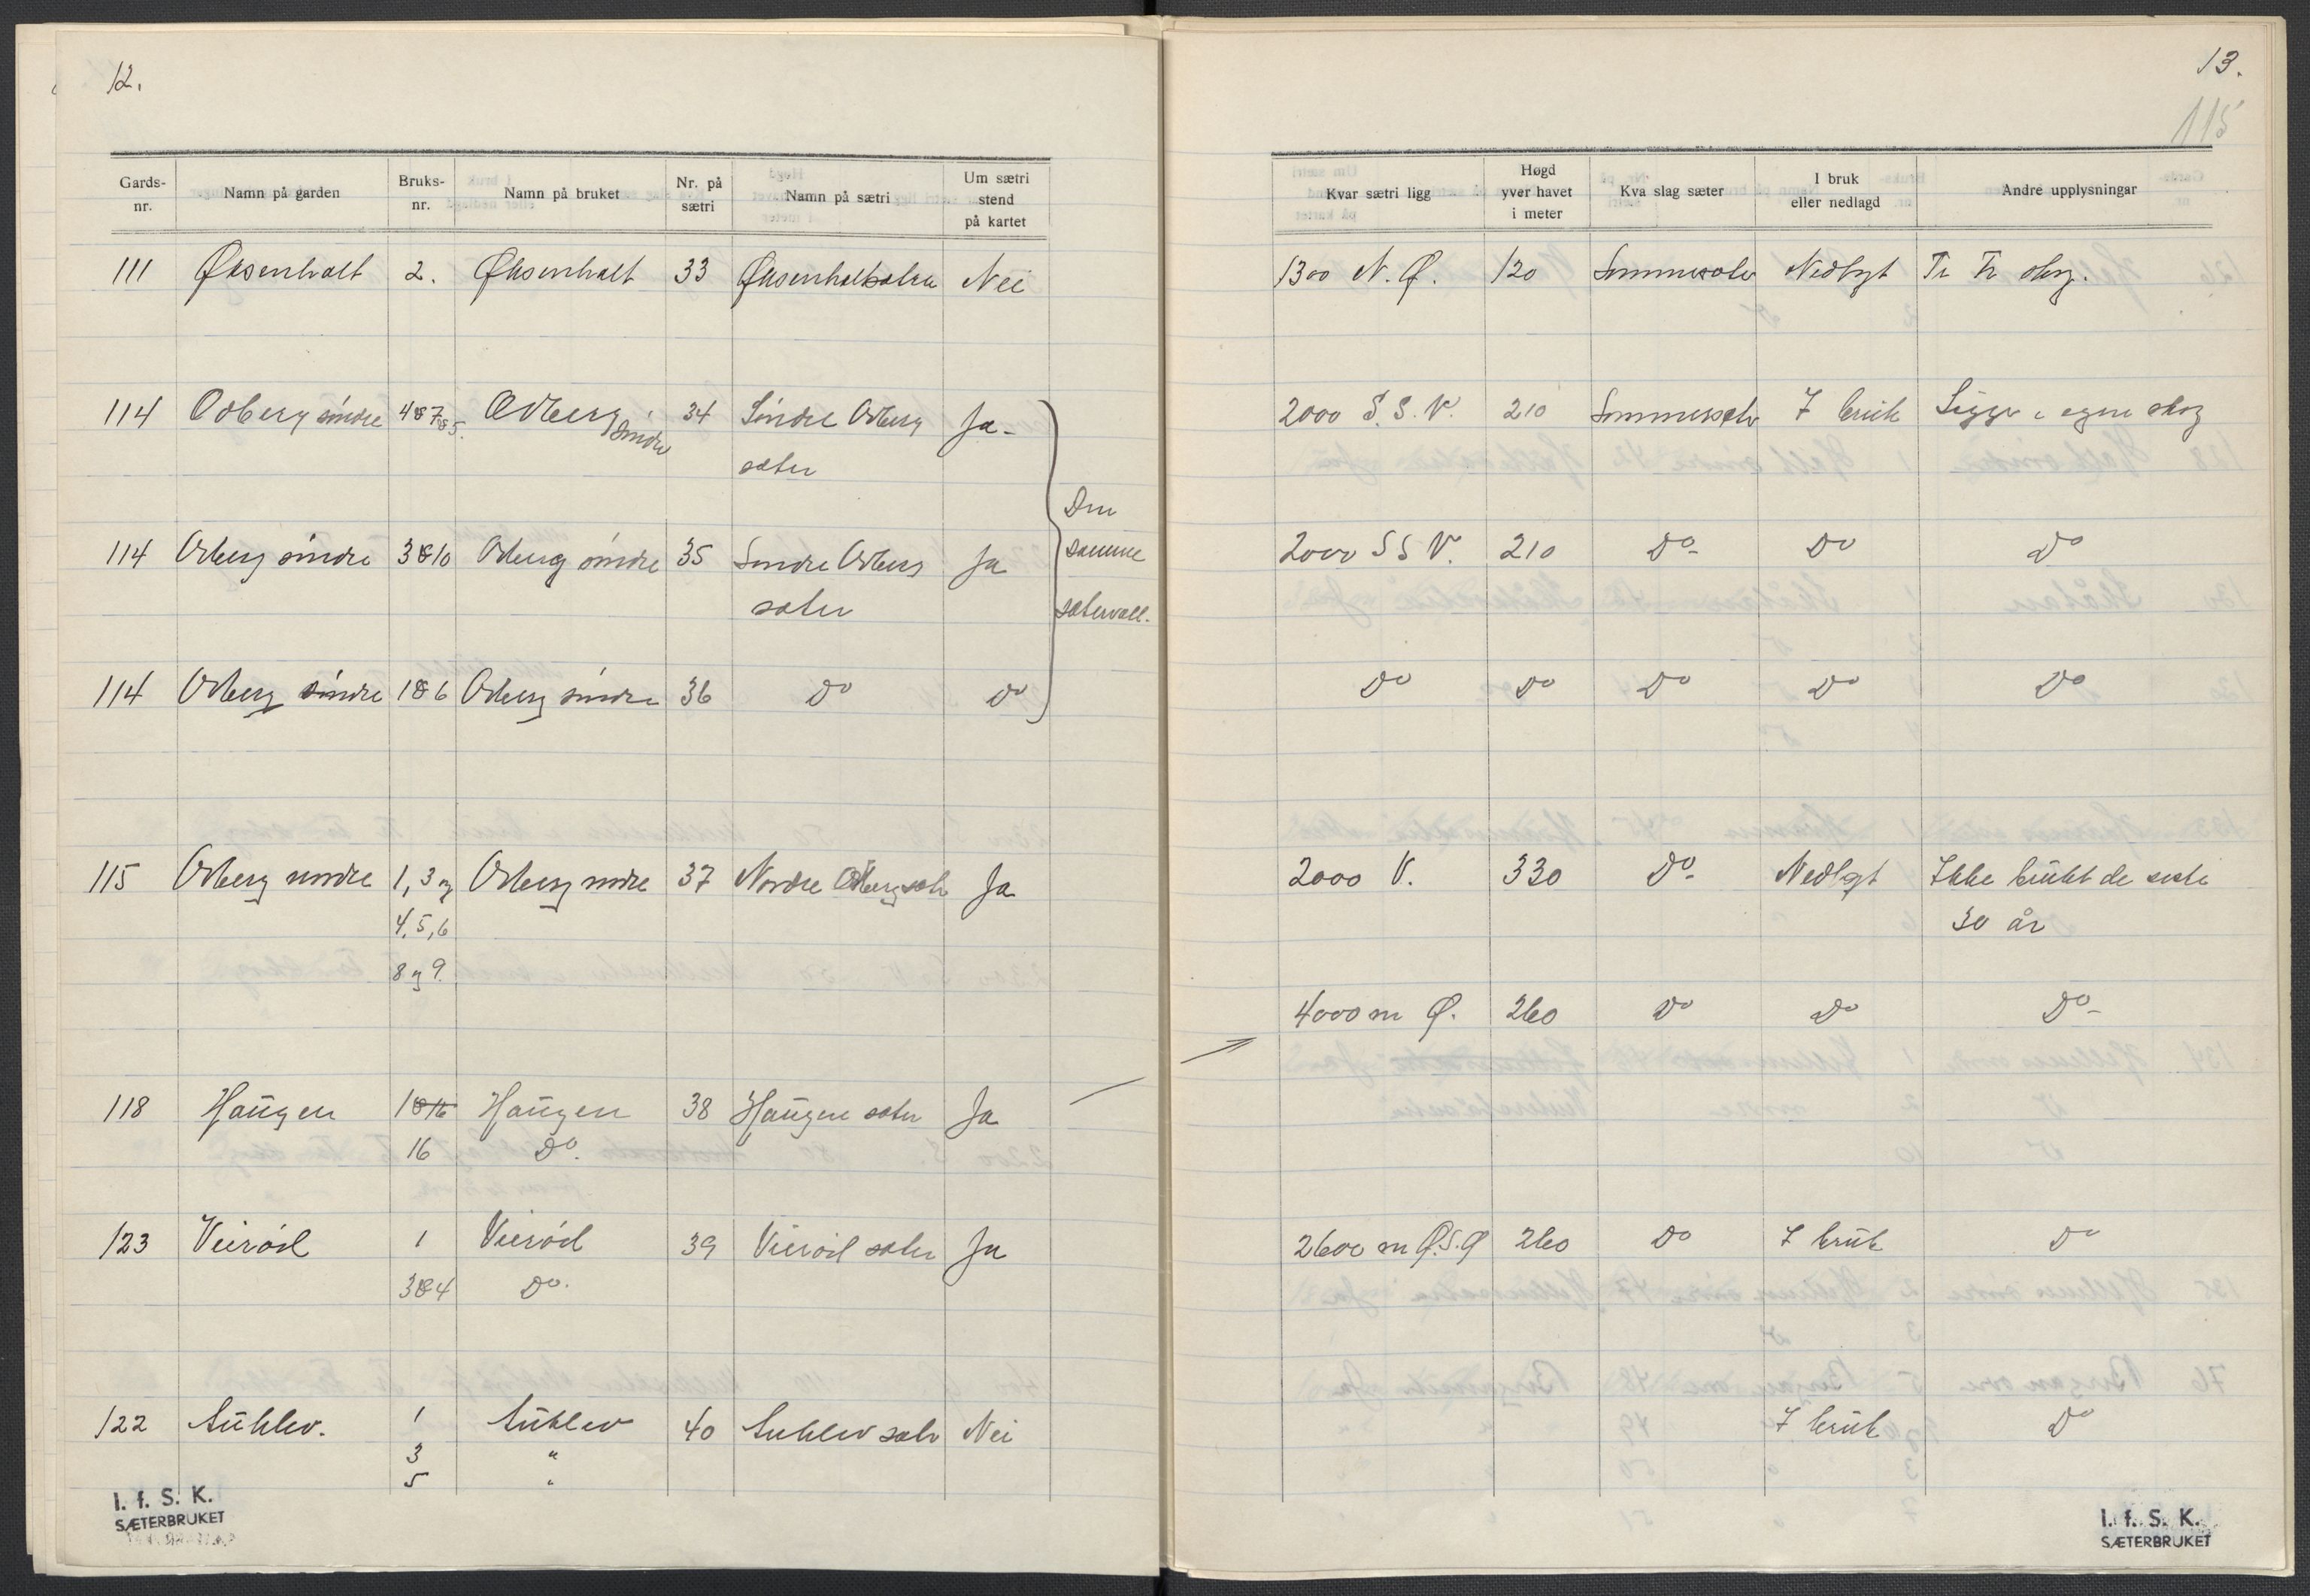 12.
Gards-nr. Namn på garden Bruks-nr. Namn på bruket Nr. på sætri Namn på sætri Um sætri stend på kartet
111 Øksenholt 2. Øksenholt 33 Øksenholtsætra Nei
114 Odberg søndre 4 & 7 & 5. Odberg søndre 34 Søndre Odberg Ja-
sæter
114 Odberg søndre 3 & 10 Odberg søndre 35 Søndre Odberg Ja
sæter
114 Odberg søndre 1 & 6 Odberg søndre 36 Do Do
Den
samme
sætervoll.
115 Odberg nordre 1, 3 og Odberg nordre 37 Nordre Odbergsæter Ja
4, 5, 6
8 og 9.
118 Haugen 1 & 16 Haugen 38 Haugen sæter Ja
16 Do.
123 Veirød 1 Veirød 39 Veirød sæter Ja
3 & 4 Do.
122 1 40 Nei
3 "
5 "
I. f. S. K.
SÆTERBRUKET
13.
115
Kvar sætri ligg Høgd yver havet i meter Kva slag sæter I bruk eller nedlagd Andre upplysningar
1300 N. Ø. 120 Sommersæter Nedlagt skog.
2000 S. S. V. 210 Sommersæter I bruk Ligger i egen skog
2000 S S V. 210 Do- Do Do
Do Do Do Do Do
2000 V. 330 Do- Nedlagt Ikke brukt de siste
30 år
4000 m Ø. 260 Do Do Do-
2600 m Ø.S.Ø 260 Do I bruk Do
I bruk Do
I. f. S. K.
SÆTERBRUKET